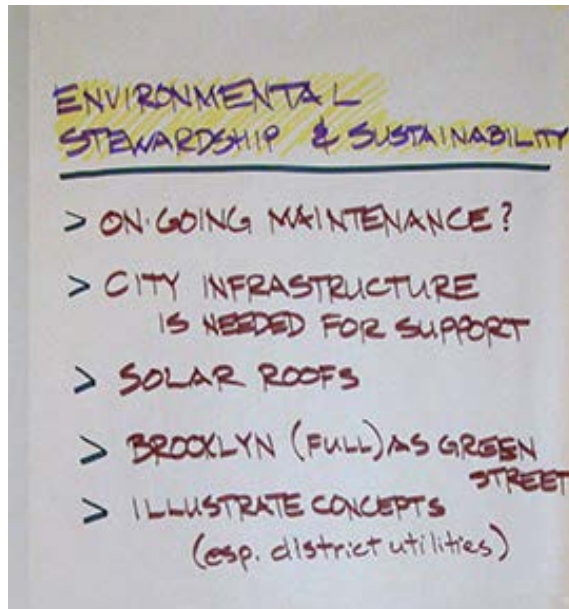 ENVIRONMENTAL
STEWARDSHIP & SUSTAINABILITY
> ON-GOING MAINTENANCE?
> CITY INFRASTRUCTURE
IS NEEDED FOR SUPPORT
> SOLAR ROOFS
> BROOKLYN (FULL) AS GREEN
STREET
> ILLUSTRATE CONCEPTS
(esp. district utilities)